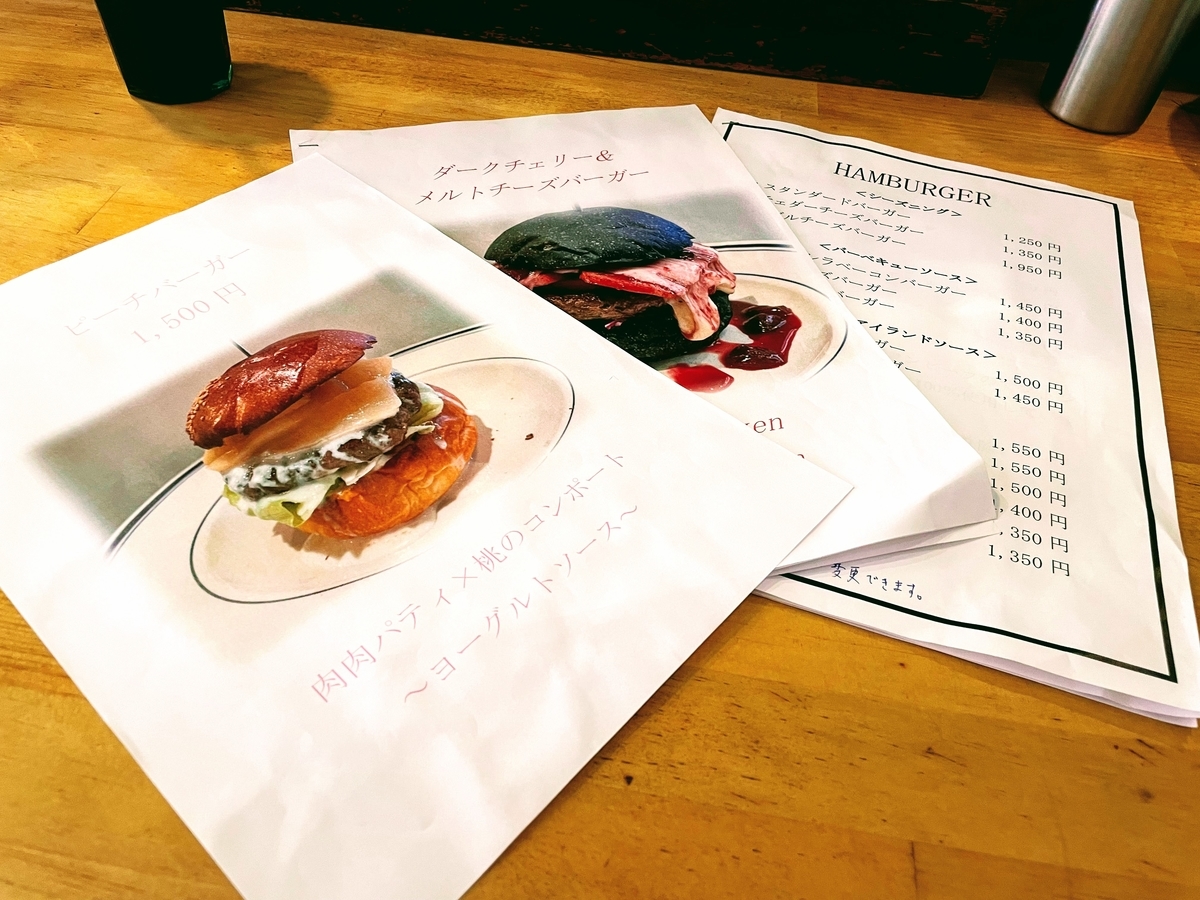 ピーチバーガー
1,500円
肉肉パティ×桃のコンポート
～ヨーグルトソース～
ダークチェリー&
メルトチーズバーガー
HAMBURGER
<シーズニング>
スタンダードバーガー 1,250 円
チェダーチーズバーガー 1,350 円
チーズバーガー 1,950 円
<バーベキューソース>
ベーコンバーガー 1,450 円
バーガー 1,400 円
バーガー 1,350 円
アイランドソース>
ーガー 1,500 円
ーガー 1,450 円
1,550 円
1,550 円
1,500 円
,400 円
,350 円
1,350 円
変更できます。